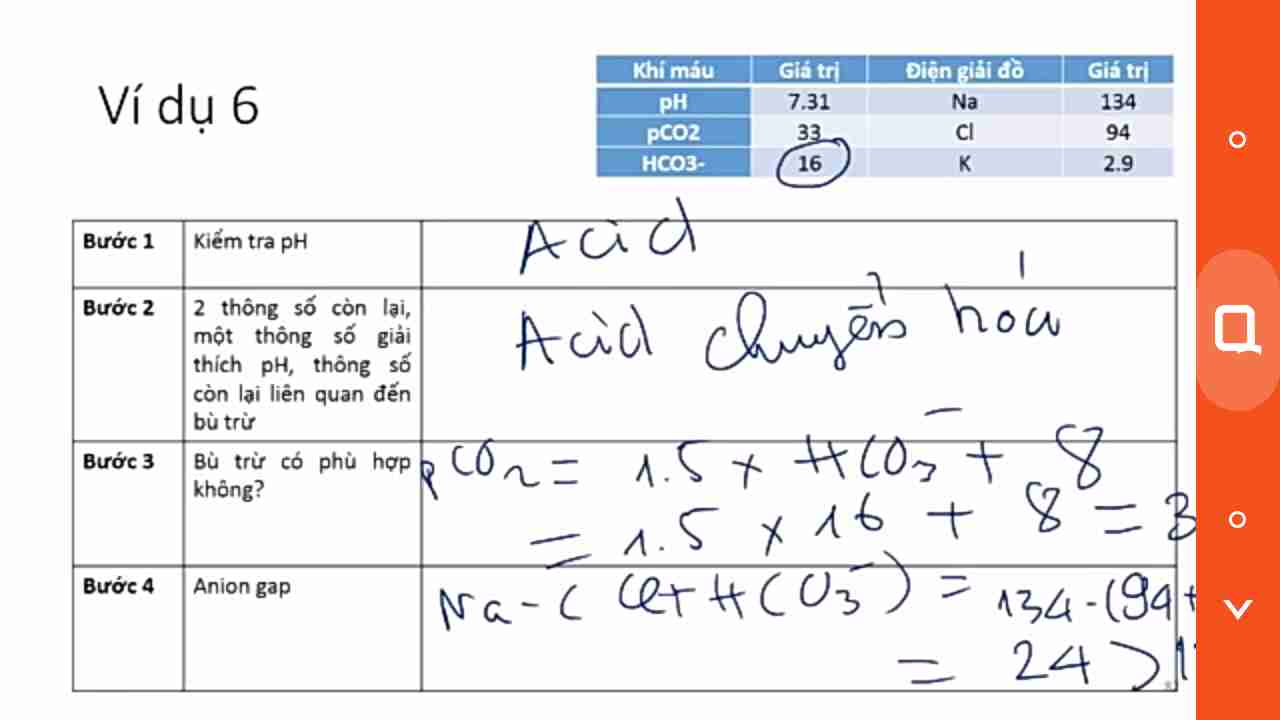 Ví dụ 6
Khí máu Giá trị Điện giải đồ Giá trị
pH 7.31 Na 134
pCO2 33 Cl 94
HCO3- 16 K 2.9
Bước 1 Kiểm tra pH Acid
Bước 2 2 thông số còn lại, Acid chuyển hóa
một thông số giải
thích pH, thông số
còn lại liên quan đến
bù trừ
Bước 3 Bù trừ có phù hợp pCO2 = 1.5 x HCO3- + 8
không? = 1.5 x 16 + 8 = 3
Bước 4 Anion gap Na - (Cl + HCO3-) = 134 - (94 +
= 24 > 1